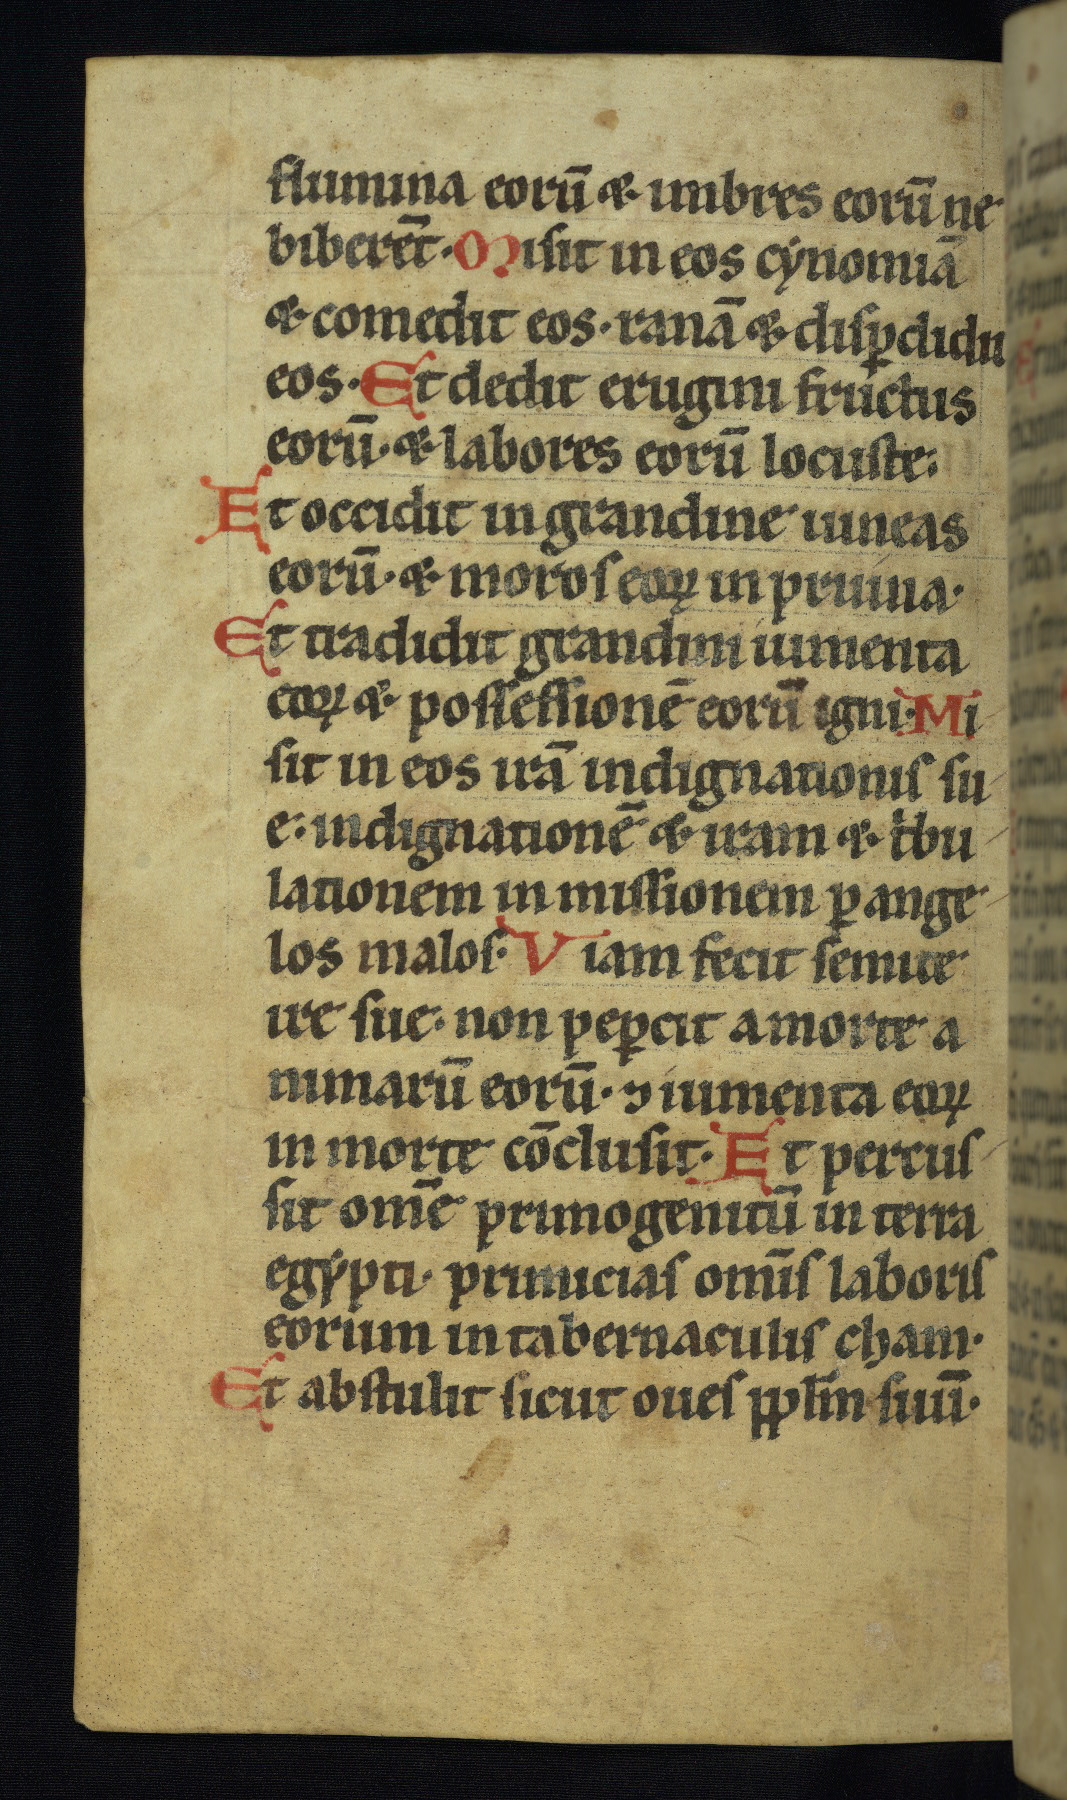 flumina eorū & imbres eorū ne
biberēt· Misit in eos cynomiā
& comedit eos· ranā & disꝑdidit
eos· Et dedit erugini fructus
eorū· & labores eorū locuste:
Et occidit in grandine uineas
eorū· & moros eoꝝ in pruina·
Et tradidit grandini iumenta
eoꝝ & possessionē eorū igni· Mi
sit in eos irā indignationis su
e: indignationē & iram & t̾bu
lationem inmissionem ꝑ ange
los malos· Viam fecit semite
ire sue· non peꝑcit a morte a
nimarū eorū· ⁊ iumenta eoꝝ
in morte cōclusit· Et percus
sit omē primogenitū in terra
egypti· primicias omīs laboris
eorum in tabernaculis cham·
Et abstulit sicut oues pplm̄ suū·